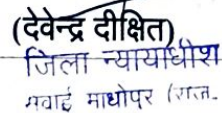 (देवेन्द्र दीक्षित)
जिला न्यायाधीश
सवाई माधोपुर (राज.